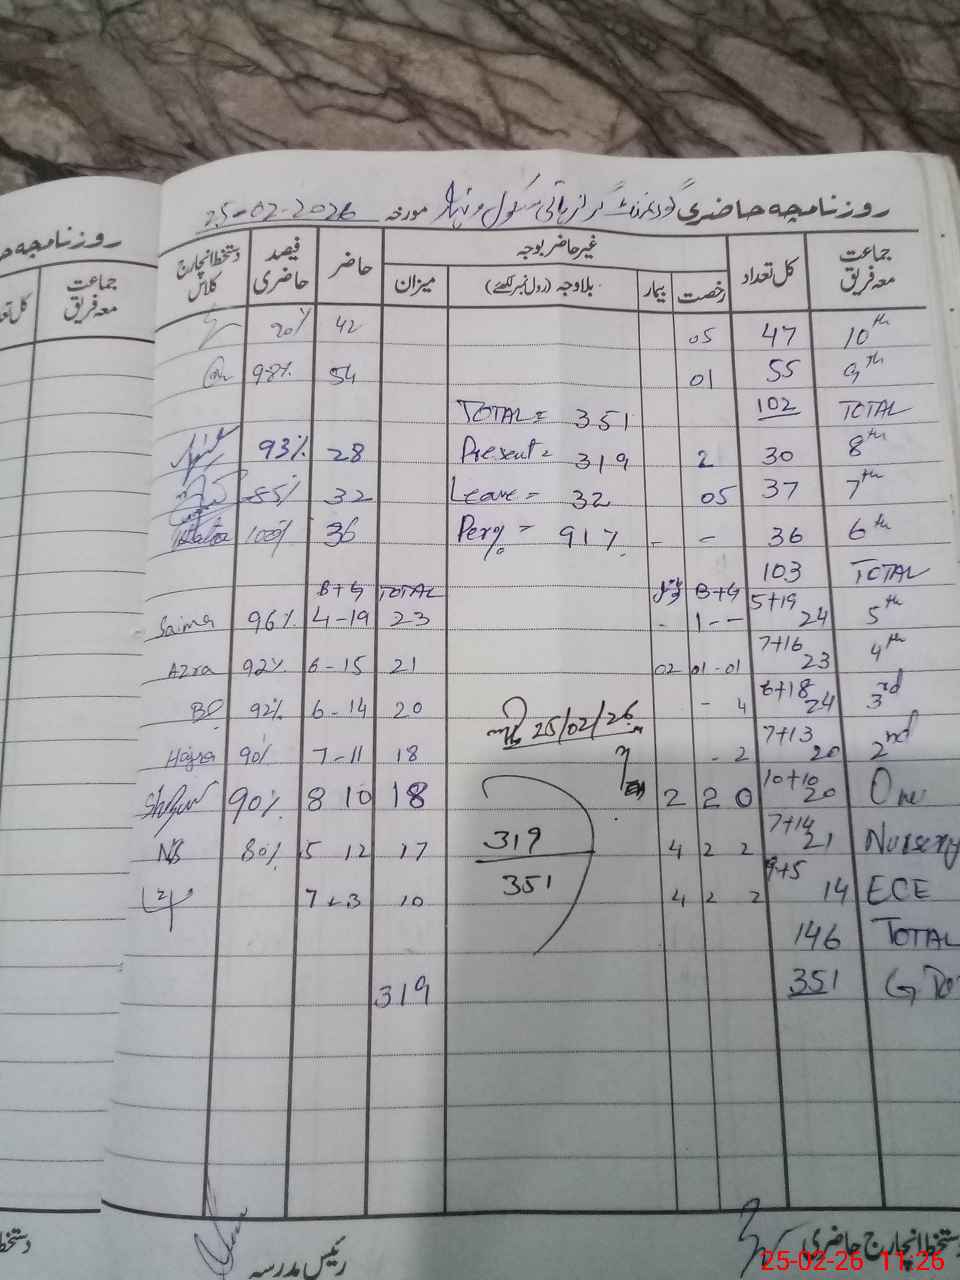 روزنامچہ حاضری گورنمنٹ گرلز ہائی سکول مورخہ 25-02-2026
جماعت معہ فریق کل تعداد غیر حاضر بوجہ حاضر فیصد حاضری دستخط انچارج کلاس
رخصت بیمار بلاوجہ (رول نمبر لکھئے) میزان
10th 47 05 42 90%
9th 55 01 54 98%
TOTAL 102 TOTAL = 351
8th 30 2 Present = 319 28 93%
7th 37 05 Leave = 32 32 85%
6th 36 - - Per% = 917. 36 100%
TOTAL 103
B+G TOTAL B+G
5th 5+19 24 1 - - - 23 4-19 96% Saima
4th 7+16 23 01-01 02 21 6-15 92% Azra
3rd 6+18 24 - 4 20 6-14 92%
25/02/26
2nd 7+13 20 - 2 18 7-11 90% Hajra
One 10+10 20 2 0 2 18 8 10 90%
Nursery 7+14 21 2 2 4 319 17 5 12 80% NB
ECE 9+5 14 2 2 4 351 10 7+3
TOTAL 146
351 319
دستخط انچارج حاضری
رئیس مدرسہ
روزنامچہ
جماعت معہ فریق
25-02-26 11:26